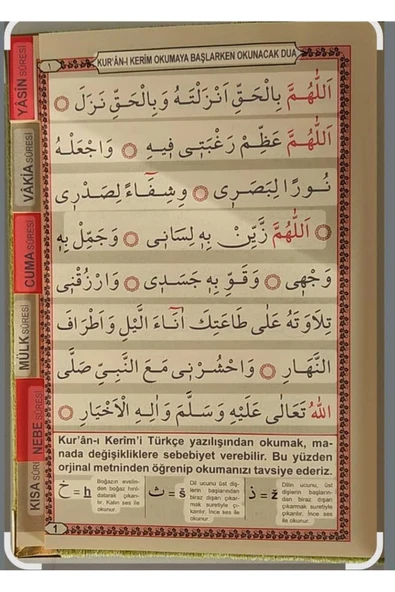 KUR'ÂN-I KERİM OKUMAYA BAŞLARKEN OKUNACAK DUA
1
اَللّٰهُمَّ بِالْحَقِّ اَنْزَلْتَهُ وَبِالْحَقِّ نَزَلَ
اَللّٰهُمَّ عَظِّمْ رَغْبَتِى فِيهِ وَاجْعَلْهُ
نُورًا لِبَصَرِى وَشِفَٓاءً لِصَدْرِى
اَللّٰهُمَّ زَيِّنْ بِهِ لِسَانِى وَجَمِّلْ بِهِ
وَجْهِى وَقَوِّ بِهِ جَسَدِى وَارْزُقْنِى
تِلَاوَتَهُ عَلٰى طَاعَتِكَ اٰنَٓاءَ الَّيْلِ وَاَطْرَافَ
النَّهَارِ وَاحْشُرْنِى مَعَ النَّبِىِّ صَلَّى
اللّٰهُ تَعَالٰى عَلَيْهِ وَسَلَّمَ وَاٰلِهِ الْاَخْيَارِ
Kur'ân-ı Kerîm'i Türkçe yazılışından okumak, ma-
nada değişikliklere sebebiyet verebilir. Bu yüzden
orjinal metninden öğrenip okumanızı tavsiye ederiz.
خ = h
Boğazın evelin-
den boğaz hırıl-
datarak çıkarı-
lır. Kalın ses ile
okunur.
ث = ś
Dil ucunu, üst diş-
lerin başlarından
biraz dışarı çıkar-
mak suretiyle çı-
karılır. İnce ses ile
okunur.
ذ = ž
Dilin ucunu, üst
dişlerin başların-
dan biraz dışarı
çıkarmak suretiyle
çıkarılır. İnce ses
ile okunur.
1
YÂSİN SÛRESİ
VÂKIA SÛRESİ
CUMA SÛRESİ
MÜLK SÛRESİ
NEBE SÛRESİ
KISA SÛRE